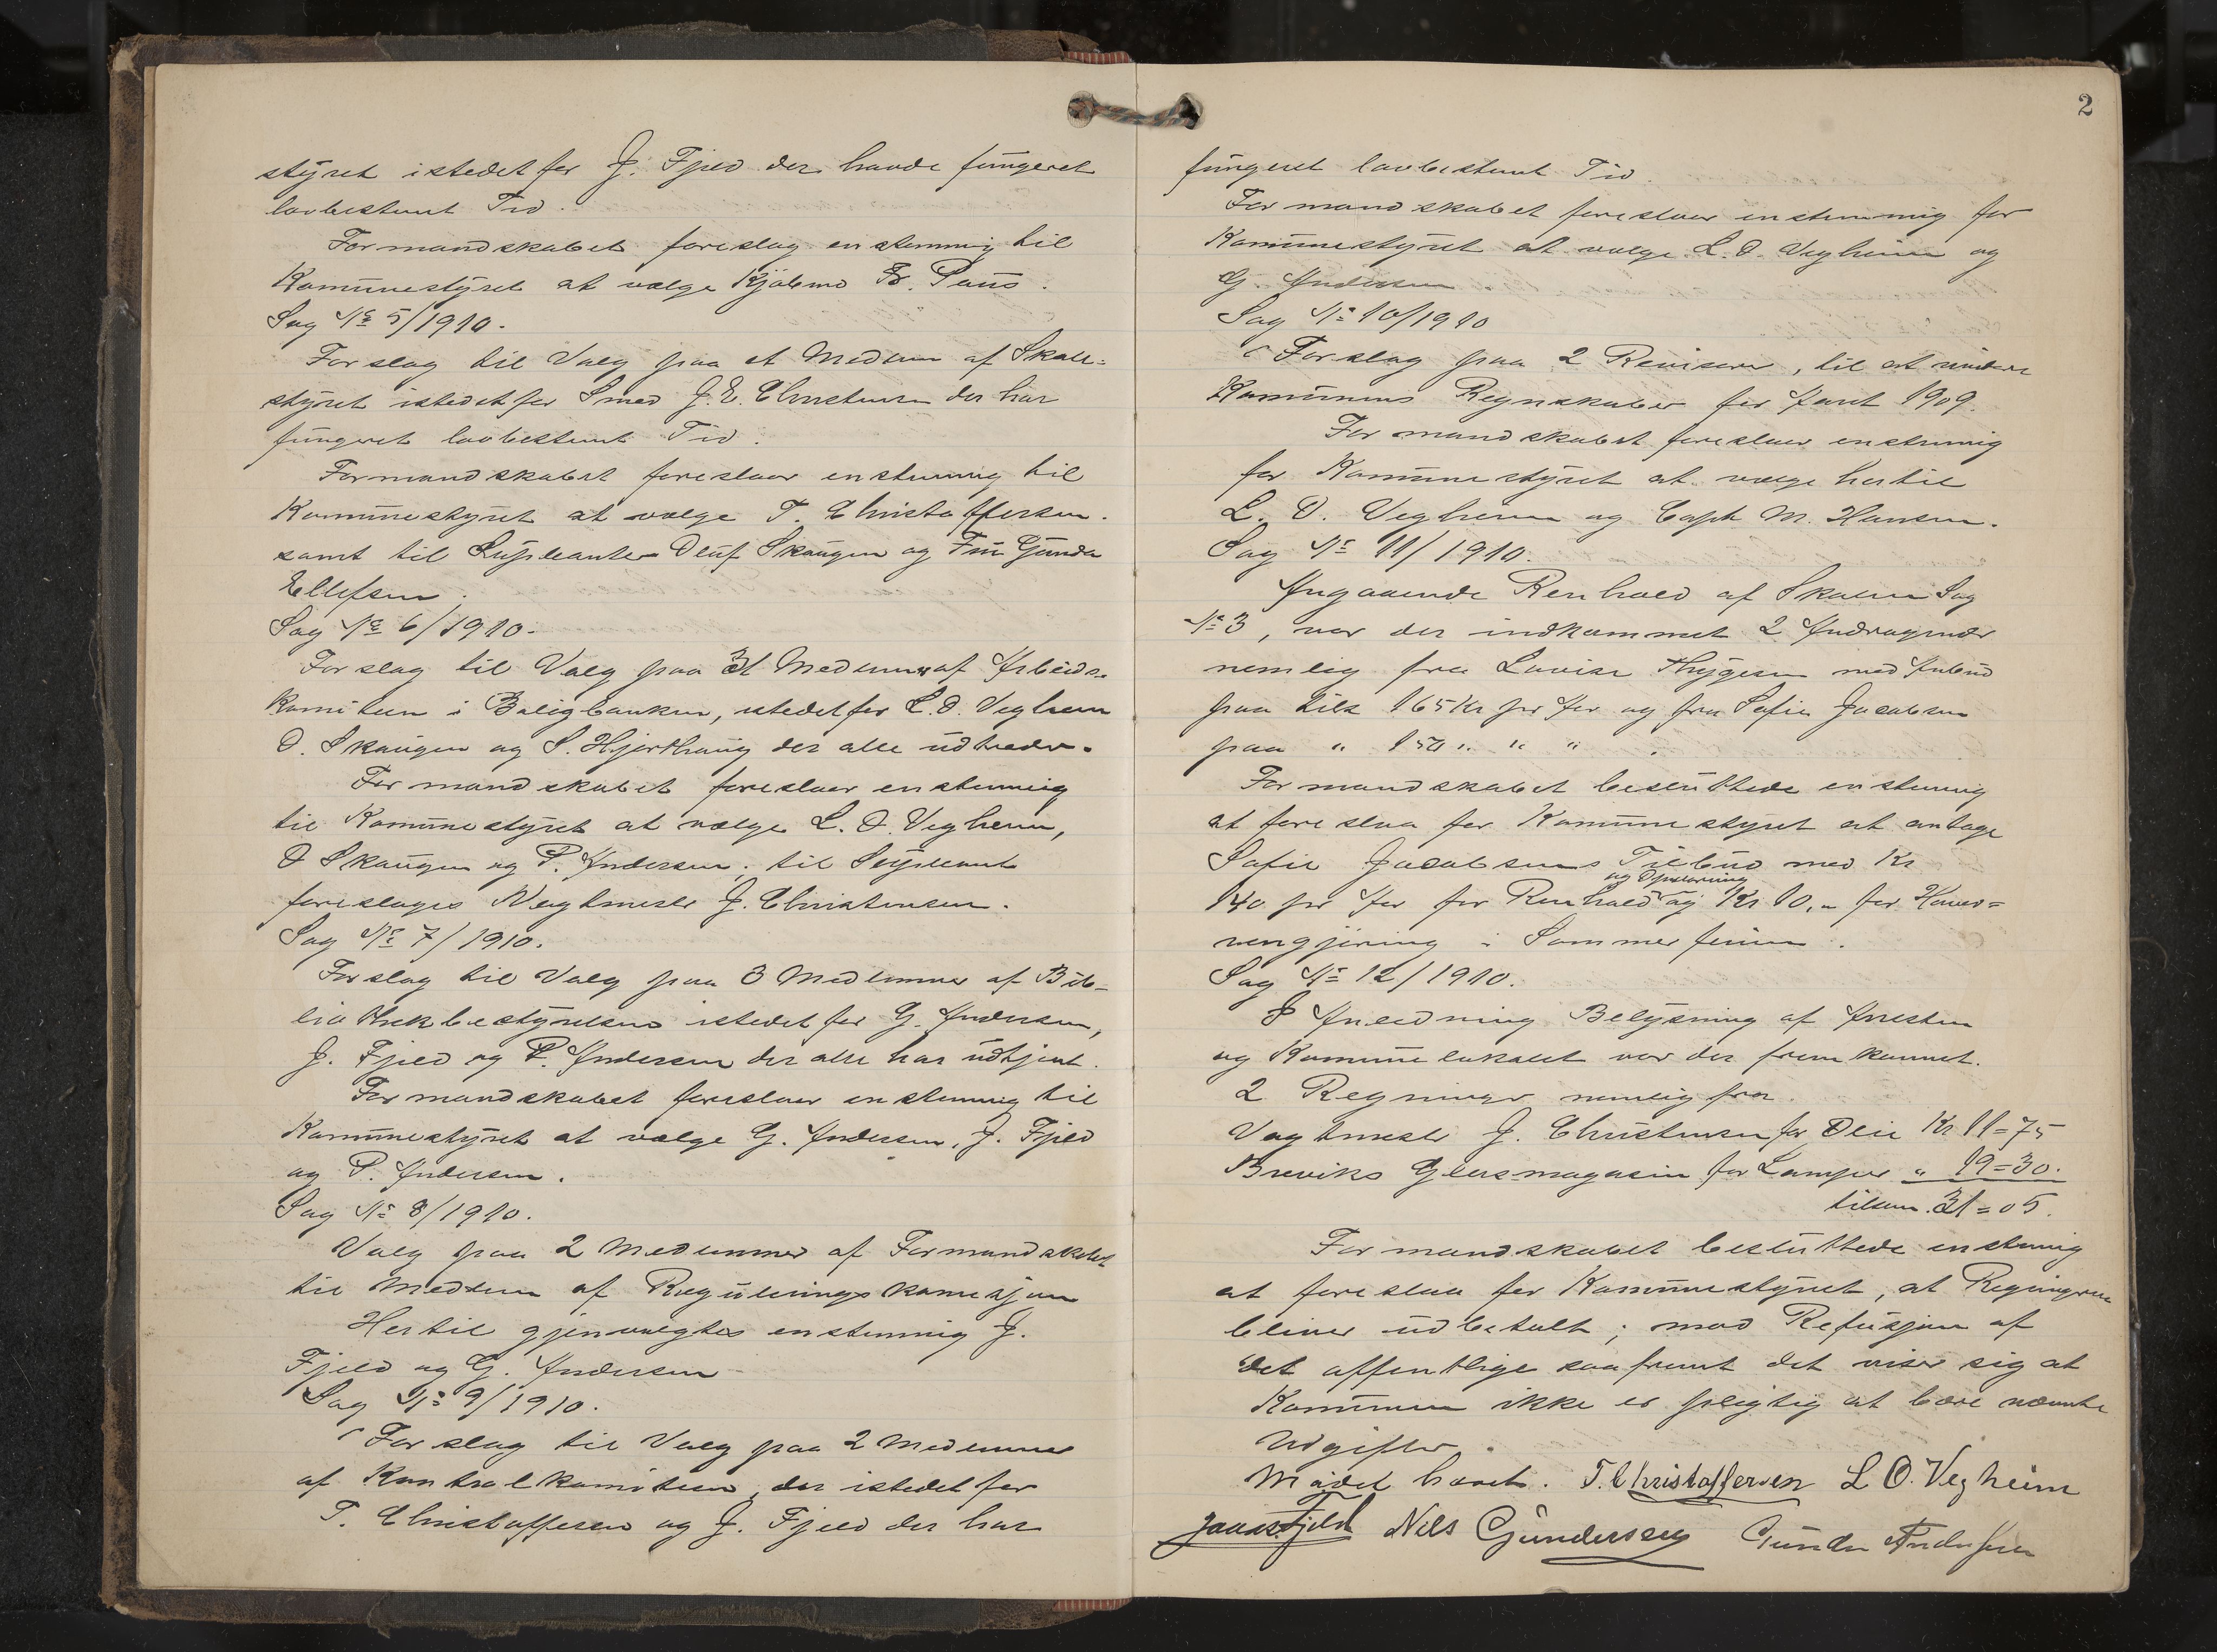 styret istedetfor J. Fjeld der havde fungeret
lovbestemt Tid.
Formandskabet foreslog enstemmig til
Komunestyret at vælge Kjøbmd Fr. Paus.
Sag No 5/1910.
Forslag til Valg paa et Medlem af Skole-
styret istedetfor Smed J. E. Christensen der har
fungeret lovbestemt Tid.
Formandskabet foreslaar enstemmig til
Komunestyret at vælge T. Christoffersen.
samt til Supleanter Oluf Skaugen og Fru Gunda
Ellefsen.
Sag No 6/1910.
Forslag til Valg paa 3 Medlemmer af Arbeids-
komiteen i Boligbanken, istedetfor L. O. Vegheim
O. Skaugen og S. Hjorthaug der alle udtræder.
Formandskabet foreslaar enstemmig
til Komunestyret at vælge L. O. Vegheim,
O Skaugen og P. Andersen, til Supleant
foreslages Vagtmester J. Christensen.
Sag No 7/1910.
Forslag til Valg paa 3 Medlemmer af Bib-
liothekbestyrelsen istedetfor G. Andersen,
J. Fjeld og P. Andersen der alle har udtjent.
Formandskabet foreslaar enstemmig til
Komunestyret at vælge G. Andersen, J. Fjeld
og P. Andersen.
Sag No 8/1910.
Valg paa 2 Medlemmer af Formandskabet
til Medlem af Reguleringskomisjon
Hertil gjenvalgtes enstemmig J.
Fjeld og G. Andersen
Sag No 9/1910.
Forslag til Valg paa 2 Medlemmer
af Kontrolkomiteen, der istedetfor
T. Christoffersen og J. Fjeld der har
2
fungeret lovbestemt Tid.
Formandskabet foreslaar enstemmig for
Komunestyret at vælge L. O. Vegheim og
G. Andersen
Sag No 10/1910
Forslag paa 2 Revisorer, til at revidere
Komunens Regnskaber for Aaret 1909.
Formandskabet foreslaar enstemmig
for Komunestyret at vælge hertil
L. O. Vegheim og Capt M. Hansen.
Sag No 11/1910.
Angaaende Renhold af Skolen Sag
No 3, var der indkommet 2 Andragender
nemlig fra Lovise Thygesen med Anbud
paa tils 165 Kr pr Aar og fra Sofie Jacobsen
paa " 150 " " "
Formandskabet besluttede enstemmig
at foreslaa for Komunestyret at antage
Sofie Jacobsens Tilbud med Kr
og Opvarming
140 pr Aar for Renhold og Kr 10," for Hoved-
rengjøring i Sommerferien.
Sag No 12/1910.
I Anledning Belysning af Arresten
og Komunelokalet var der fremkommet.
2 Regninger nemlig fra.
Vagtmester J. Christensen for Olie Kr 11=75
Breviks Glasmagasin for Lamper " 19=30.
tilsam. 31=05.
Formandskabet besluttede enstemmig
at foreslaa for Komunestyret, at Regningerne
bliver udbetalt; mod Refusjon af
det offentlige saafremt det viser sig at
Komunen ikke er pligtig at bære nævnte
Udgifter.
Mødet hævet. T. Christoffersen L O. Vegheim
Jonas Fjeld Nils Gundersen Gunder Andersen